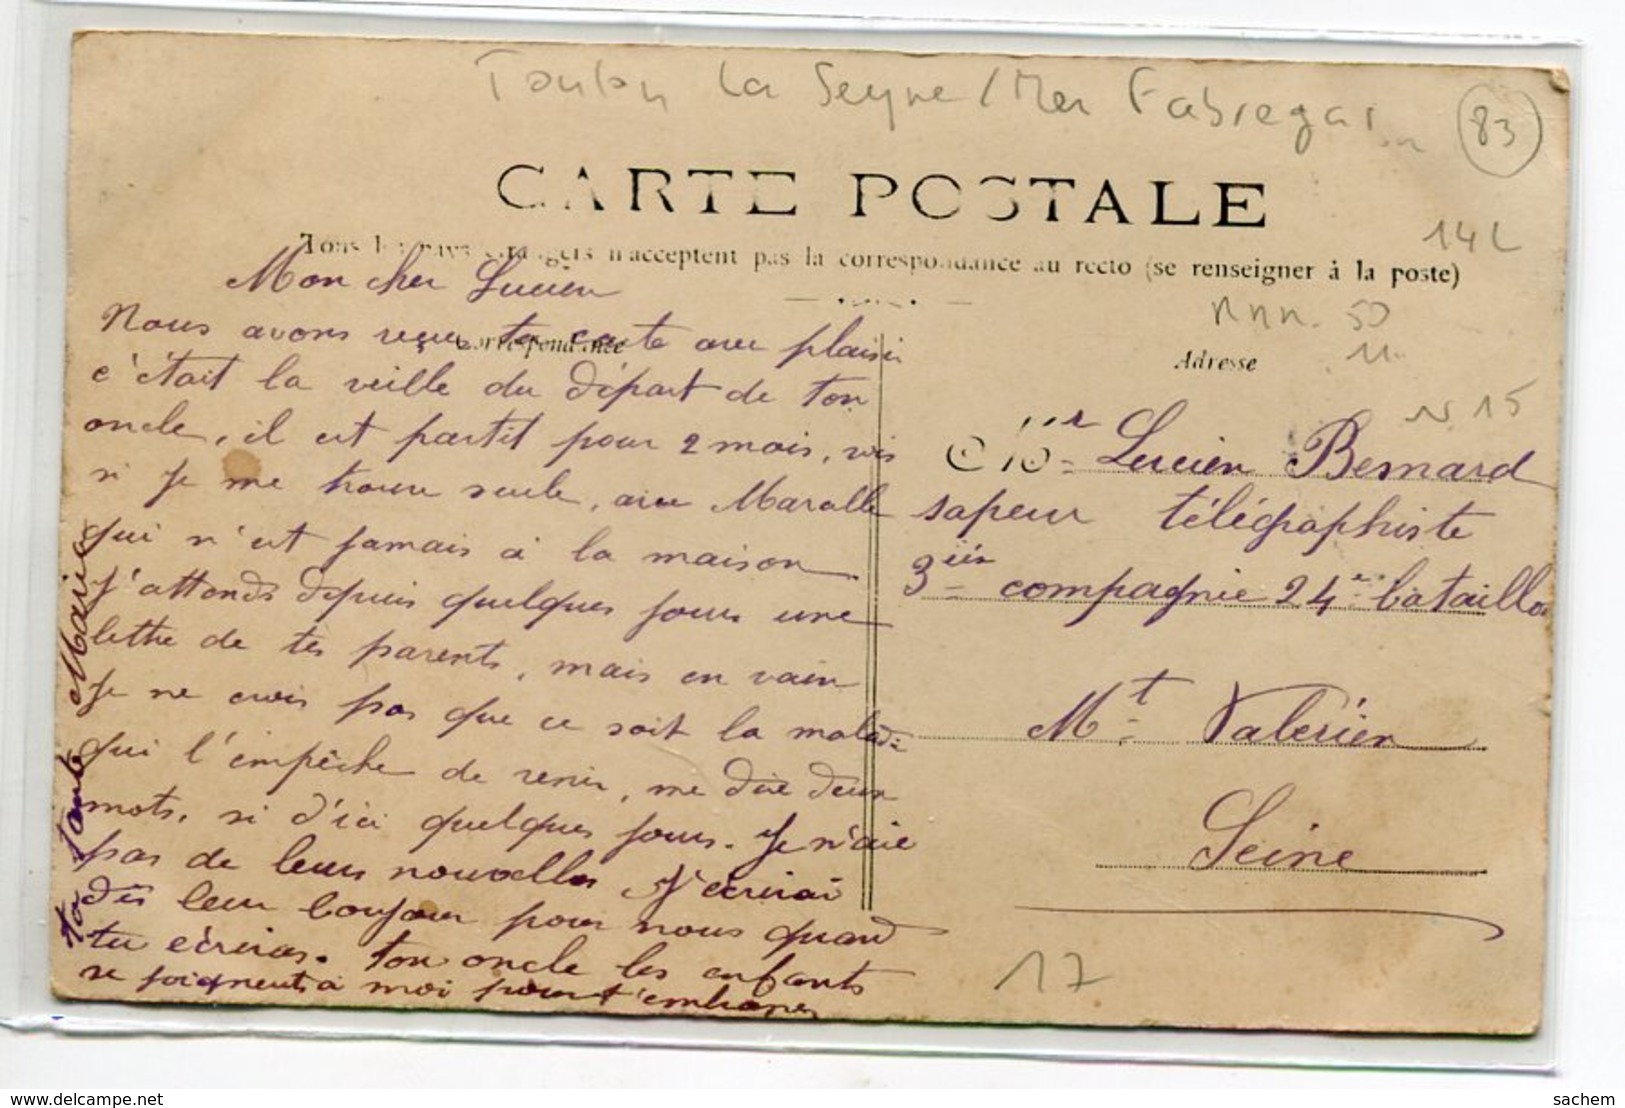 Toulon La Seyne / Mer Fabregas
83
CARTE POSTALE
Tous les pays étrangers n'acceptent pas la correspondance au recto (se renseigner à la poste)
14 L
Correspondance
Adresse
50
11
N 15
Mon cher Lucien
Nous avons reçu ta carte avec plaisir
c'était la veille du départ de ton
oncle, il est partit pour 2 mois, vois
si je me trouve seule, avec
qui n'est jamais à la maison.
J'attends depuis quelques jours une
lettre de tes parents, mais en vain
Je ne crois pas que ce soit la maladie
qui l'empêche de venir, me dire deux
mots, si d'ici quelques jours. Je n'aie
pas de leurs nouvelles J'écrirai
dis leur bonjour pour nous quand
tu écriras. ton oncle les enfants
se joignent à moi pour t'embrasser
ta tante Marie
Lucien Bernard
sapeur télégraphiste
3ième compagnie 24e bataillon
Mt Valerien
Seine
17
sachem
https://www.delcampe.net